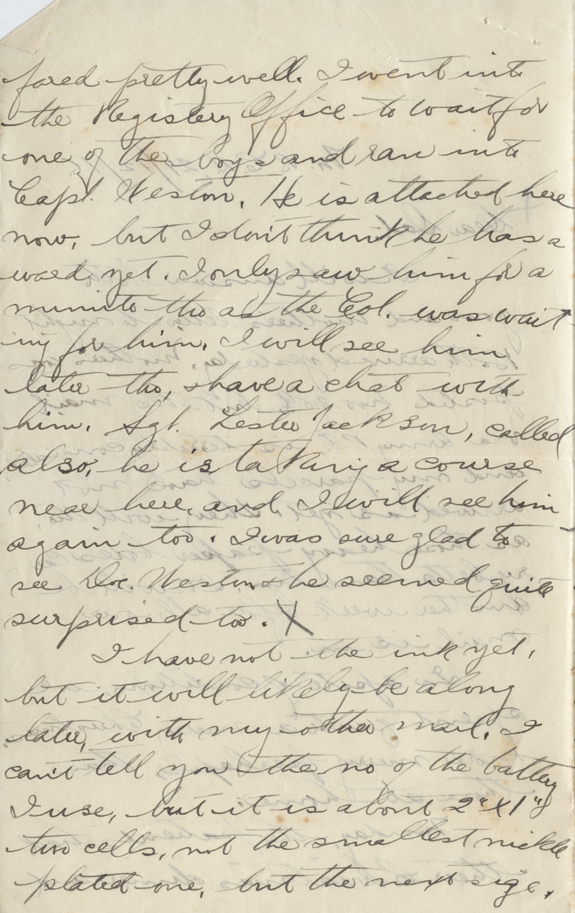 fared pretty well. I went into
the Registery Office to wait for
one of the boys and ran into
Capt. Weston. He is attached here
now, but I don't think he has a
ward yet. I only saw him for a
minute tho as the Col. was wait-
ing for him. I will see him
later tho, & have a chat with
him. Sgt. Lester Jackson, called
also, he is taking a course
near here, and I will see him
again too. I was sure glad to
see Doc. Weston & he seemed quite
surprised too. X
I have not the ink yet,
but it will likely be along
later, with my other mail. I
can't tell you the no of the battery
I use, but it is about 2"x1"
two cells, not the smallest nickle
plated one, but the next size.